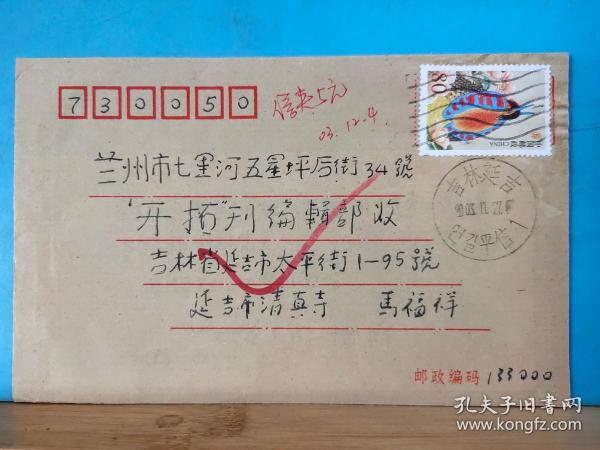 730050
信夹5元
03.12.4.
80
中国邮政 CHINA
兰州市七里河五星坪后街34號
"开拓"刊编輯部收
吉林省延吉市太平街1-95號
延吉市清真寺 馬福祥
吉林延吉
연길平信1
邮政编码 133000
孔夫子旧书网
www.kongfz.com